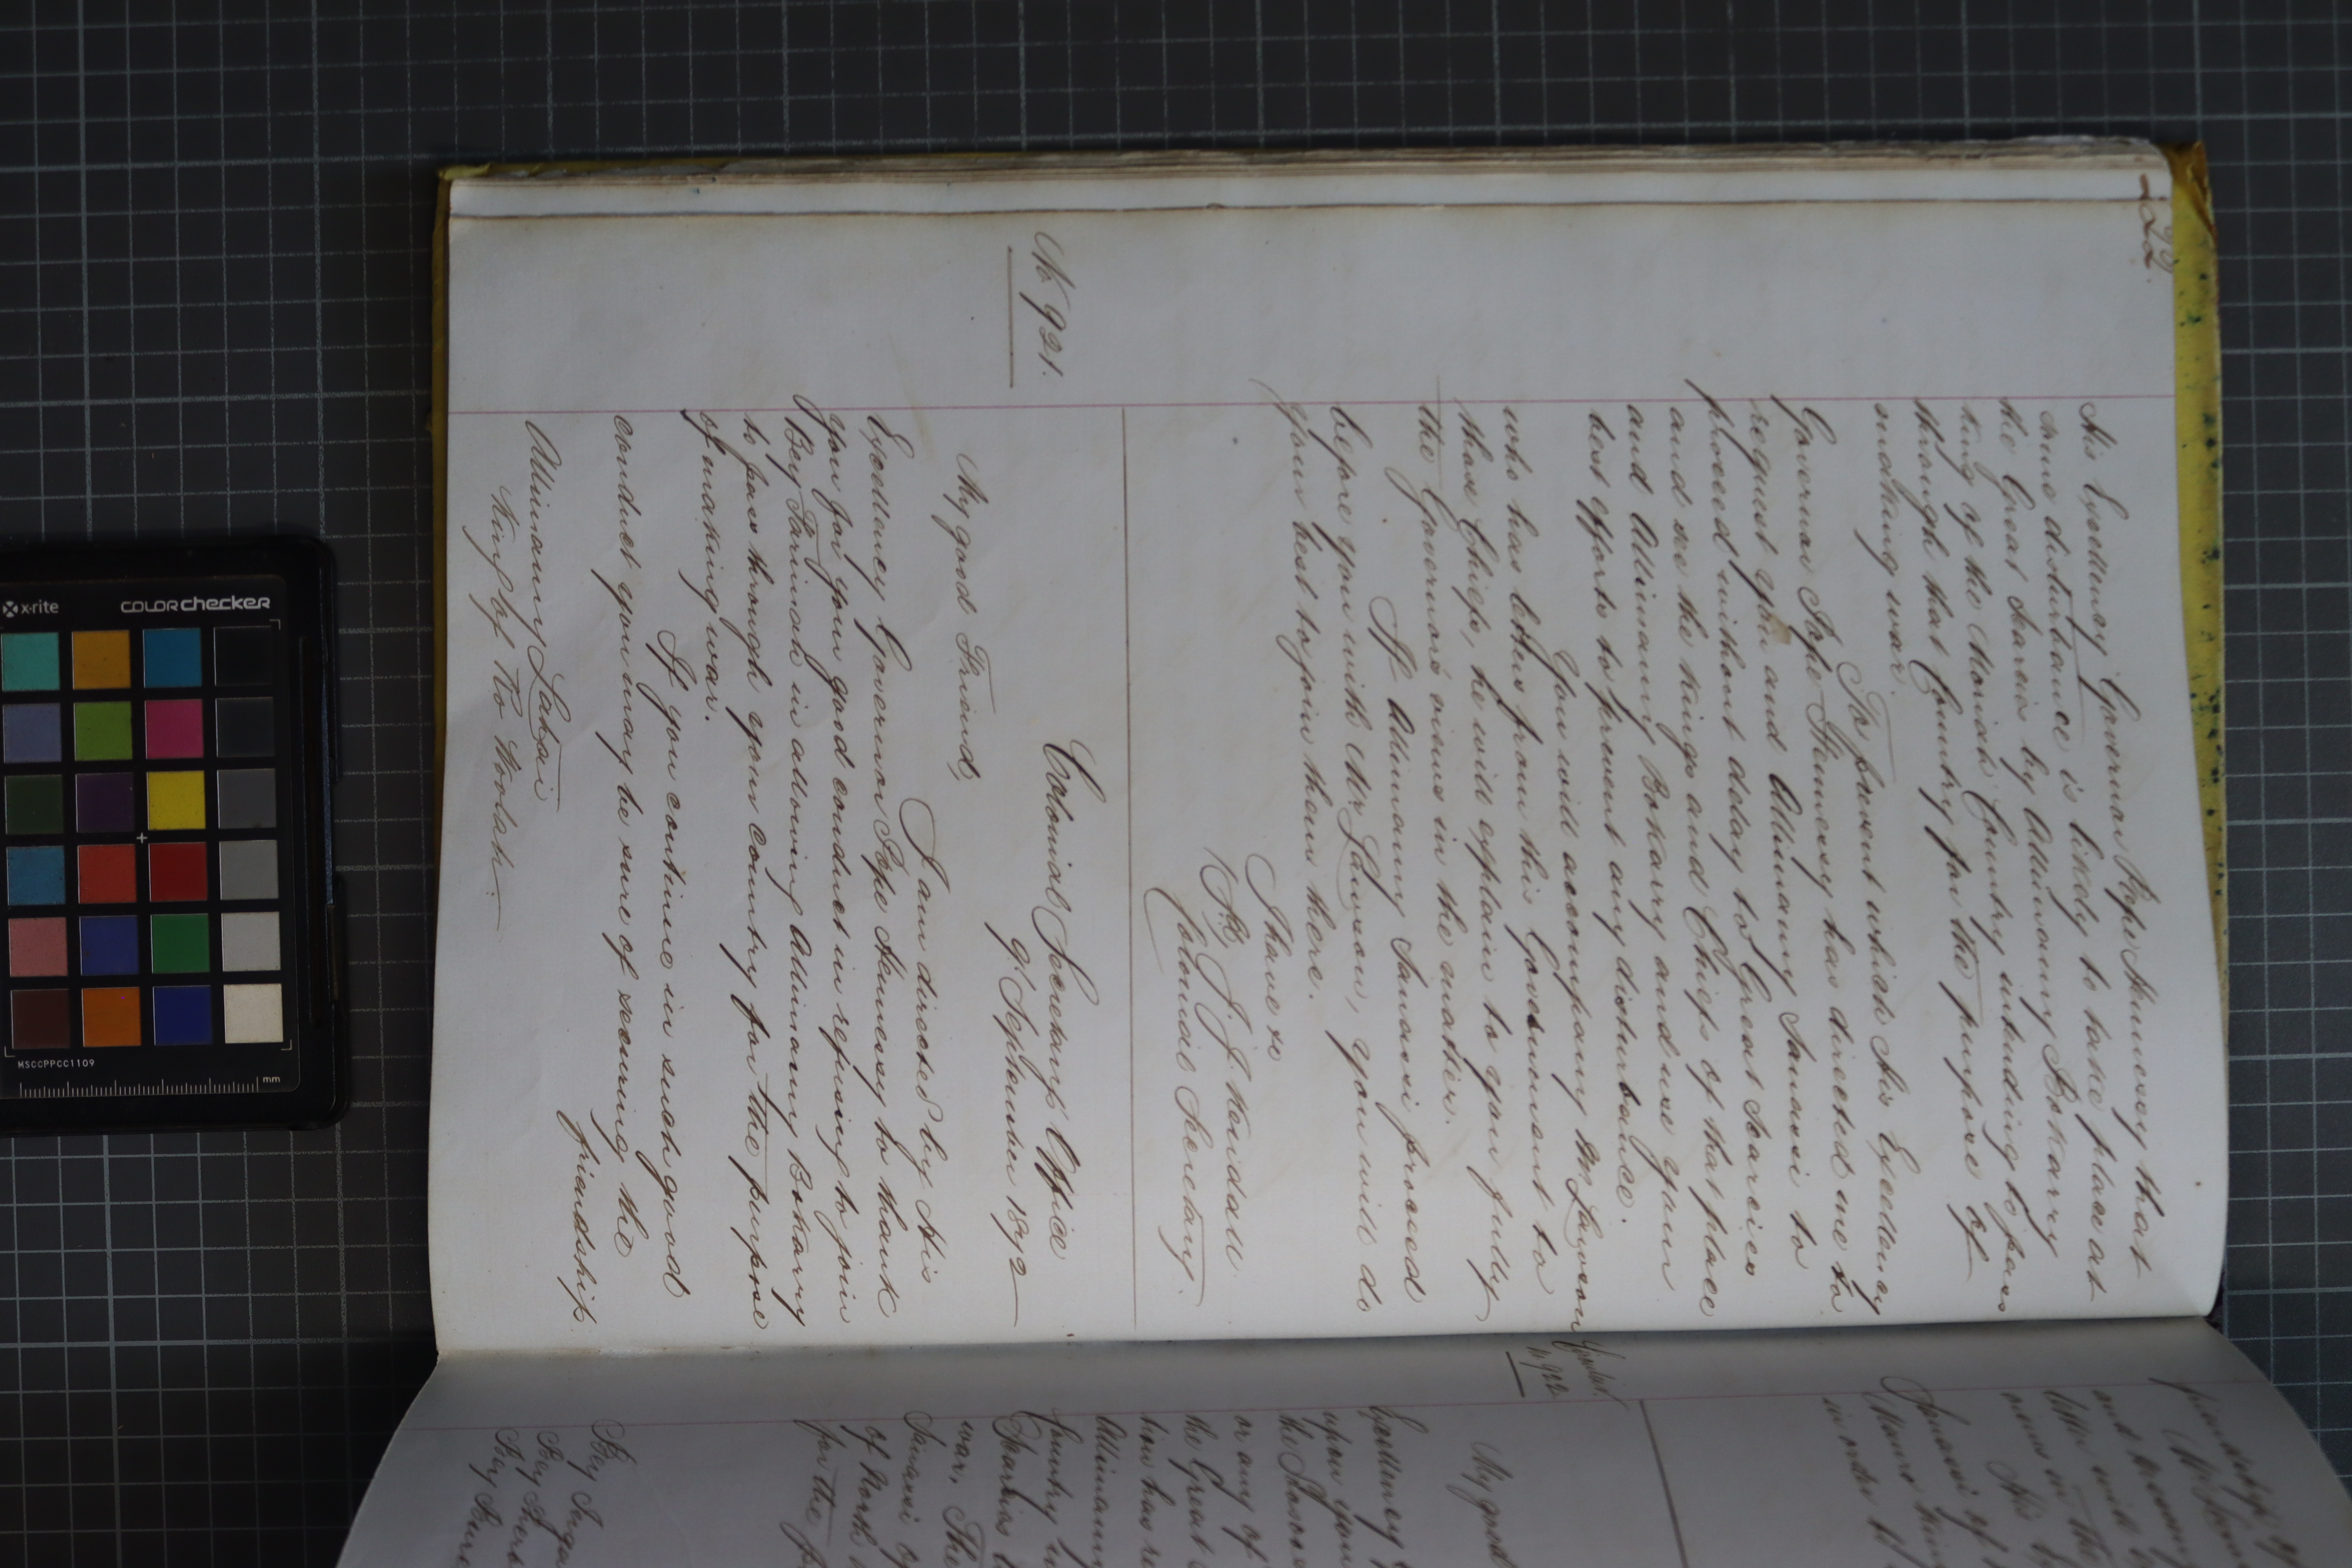 His Excellency Governor Pope Hennessy that
some disturbance is likely to take place at
the Great Scarcies by Allimamy Bokarry
King of the Moriah Country intending to pass
through that Country for the purpose of
making war.
To prevent which His Excellency
Governor Pope Hennessy has directed me to
request you and Allimamy Sanassi to
proceed without delay to Great Scarcies
and see the Kings and Chiefs of that place
and Allimamy Bokarry and use your
best efforts to prevent any disturbance.
You will accompany Mr Lawson
who has letters from this Government to
those Chiefs, he will explain to you fully
the Governor's views in the matter.
If Allimamy Sanassi proceed
before you with Mr Lawson, you will do
your best to join them there.
I have &c
J. J. Kendall
Colonial Secretary.
No 921.
Colonial Secretary's Office
9 September 1872
My good Friend,
I am directed by His
Excellency Governor Pope Hennessy to thank
you for your good conduct in refusing to join
Bey Farimah in allowing Allimamy Bokarry
to pass through your Country for the purpose
of making war.
If you continue in such good
conduct you may be sure of securing the
friendship
Allimamy Lahai
King of Ro Woolah.
922
My good
Excellency
upon your
or any of
the Great
tion has
Allimamy
Country
Scarcies
war. The
Sanassi of
of North
for the
Bey
Bey Sherb
Bey
x-rite
COLORchecker
MSCCPPCC1109
mm